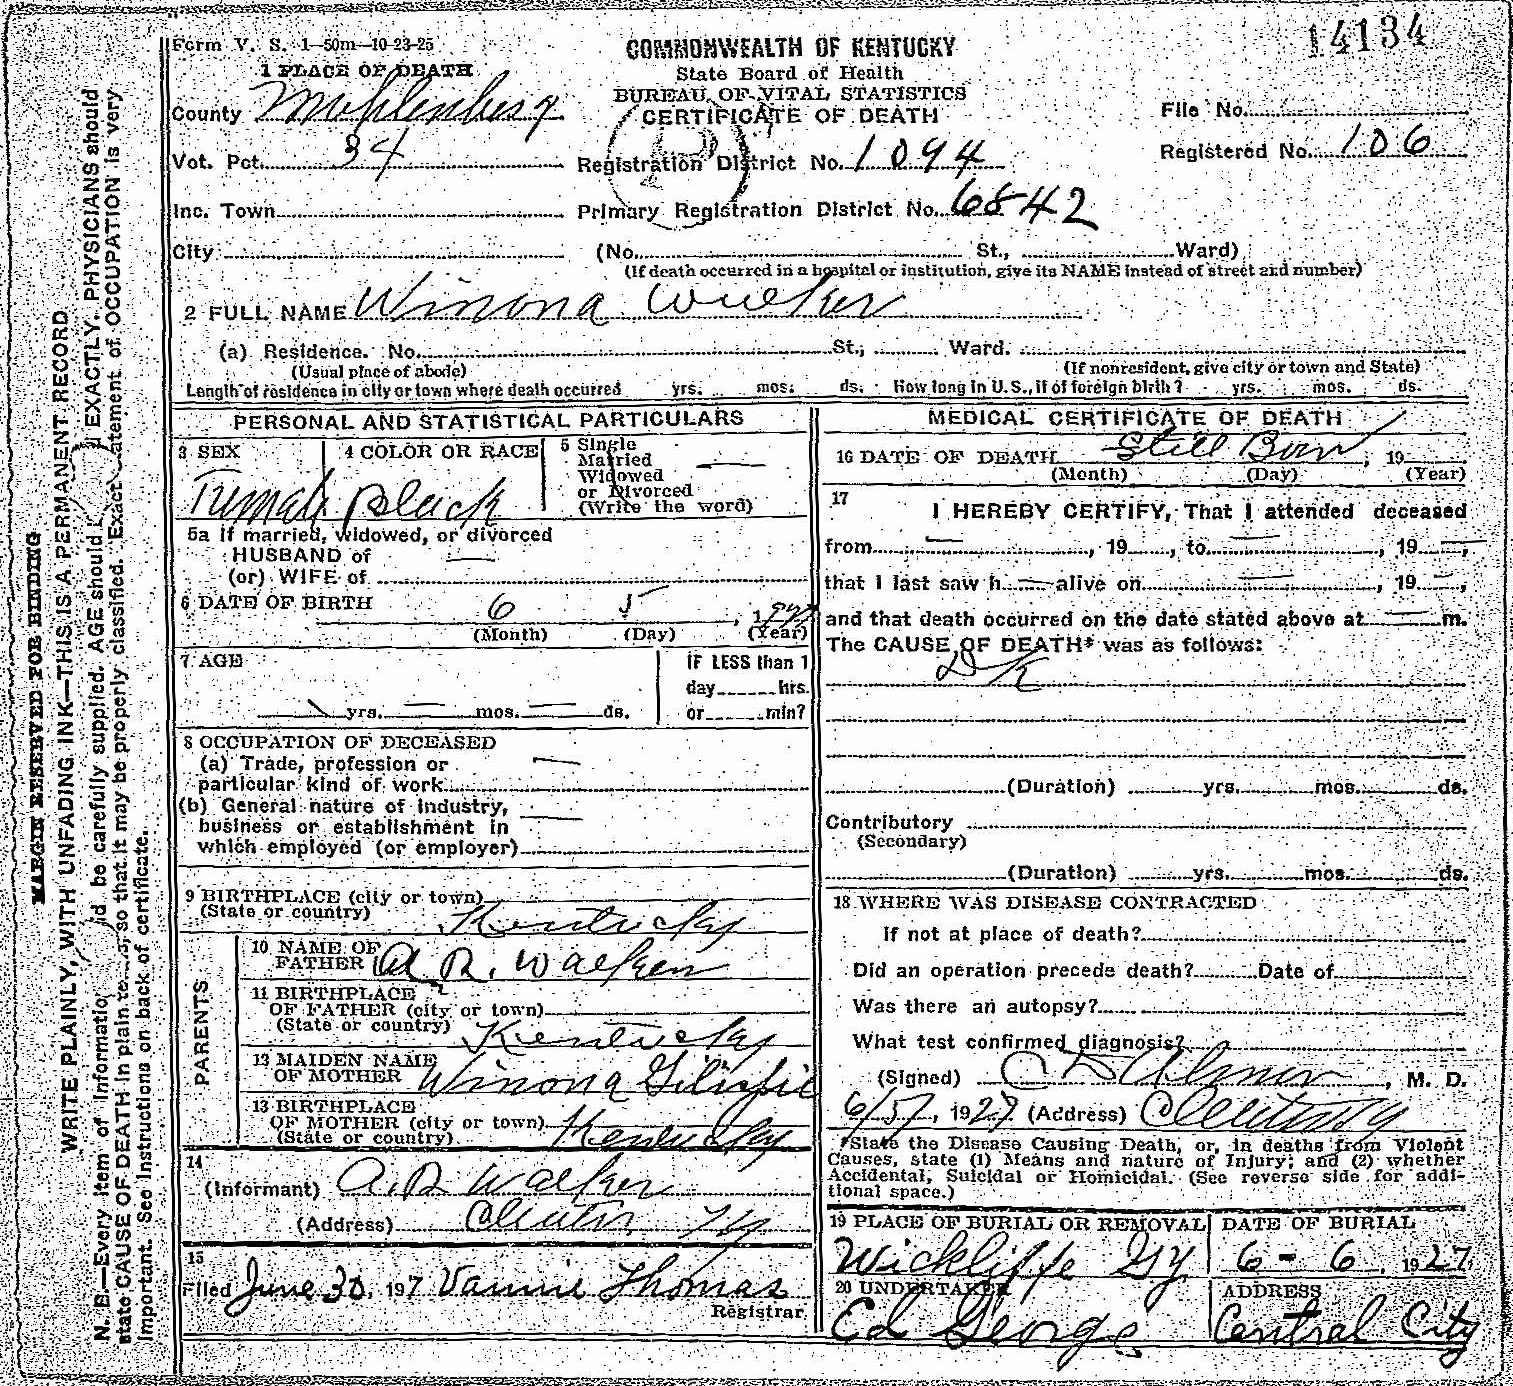 14134
Form V. S. 1—50m—10-23-25
COMMONWEALTH OF KENTUCKY
State Board of Health
BUREAU OF VITAL STATISTICS
CERTIFICATE OF DEATH
1 PLACE OF DEATH
County Muhlenberg
File No.
Vot. Pct. 34
Registration District No. 1094
Registered No. 106
Inc. Town
Primary Registration District No. 6842
City
(No. St., Ward)
(If death occurred in a hospital or institution, give its NAME instead of street and number)
2 FULL NAME Winona Walker
(a) Residence. No. St., Ward.
(Usual place of abode) (If nonresident, give city or town and State)
Length of residence in city or town where death occurred yrs. mos. ds. How long in U.S., if of foreign birth? yrs. mos. ds.
PERSONAL AND STATISTICAL PARTICULARS
3 SEX
Female
4 COLOR OR RACE
Black
5 Single
Married
Widowed
or Divorced
(Write the word)
5a If married, widowed, or divorced
HUSBAND of
(or) WIFE of
6 DATE OF BIRTH 6 5, 1927
(Month) (Day) (Year)
7 AGE
yrs. mos. ds.
IF LESS than 1
day hrs.
or min?
8 OCCUPATION OF DECEASED
(a) Trade, profession or
particular kind of work
(b) General nature of industry,
business or establishment in
which employed (or employer)
9 BIRTHPLACE (city or town)
(State or country) Kentucky
PARENTS
10 NAME OF
FATHER A R. Walker
11 BIRTHPLACE
OF FATHER (city or town)
(State or country) Kentucky
12 MAIDEN NAME
OF MOTHER Winona Gilispie
13 BIRTHPLACE
OF MOTHER (city or town)
(State or country) Kentucky
14
(Informant) A. R Walker
(Address) Ky
15
Filed June 30, 197 Vannie Thomas
Registrar
MEDICAL CERTIFICATE OF DEATH
16 DATE OF DEATH Still Born, 19
(Month) (Day) (Year)
17
I HEREBY CERTIFY, That I attended deceased
from , 19 , to , 19 ,
that I last saw h alive on , 19 ,
and that death occurred on the date stated above at m.
The CAUSE OF DEATH* was as follows:
DK
(Duration) yrs. mos. ds.
Contributory
(Secondary)
(Duration) yrs. mos. ds.
18 WHERE WAS DISEASE CONTRACTED
If not at place of death?
Did an operation precede death? Date of
Was there an autopsy?
What test confirmed diagnosis?
(Signed) , M. D.
6/5, 1927 (Address)
*State the Disease Causing Death, or, in deaths from Violent
Causes, state (1) Means and nature of Injury; and (2) whether
Accidental, Suicidal or Homicidal. (See reverse side for addi-
tional space.)
19 PLACE OF BURIAL OR REMOVAL
Wickliffe Ky
DATE OF BURIAL
6 - 6, 1927
20 UNDERTAKER
Ed George
ADDRESS
Central City
MARGIN RESERVED FOR BINDING
WRITE PLAINLY, WITH UNFADING INK—THIS IS A PERMANENT RECORD
N. B.—Every item of information should be carefully supplied. AGE should EXACTLY. PHYSICIANS should
state CAUSE OF DEATH in plain terms, so that it may be properly classified. Exact statement of OCCUPATION is very
important. See instructions on back of certificate.